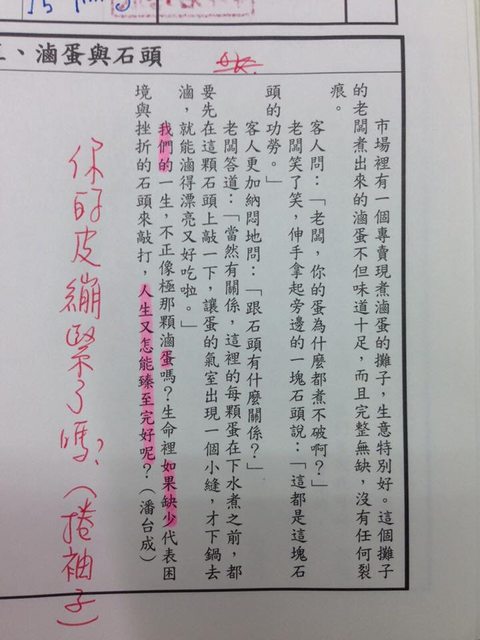 二、滷蛋與石頭
市場裡有一個專賣現煮滷蛋的攤子，生意特別好。這個攤子
的老闆煮出來的滷蛋不但味道十足，而且完整無缺，沒有任何裂
痕。
客人問：「老闆，你的蛋為什麼都煮不破啊？」
老闆笑了笑，伸手拿起旁邊的一塊石頭說：「這都是這塊石
頭的功勞。」
客人更加納悶地問：「跟石頭有什麼關係？」
老闆答道：「當然有關係，這裡的每顆蛋在下水煮之前，都
要先在這顆石頭上敲一下，讓蛋的氣室出現一個小縫，才下鍋去
滷，就能滷得漂亮又好吃啦。」
我們的一生，不正像極那顆滷蛋嗎？生命裡如果缺少代表困
境與挫折的石頭來敲打，人生又怎能臻至完好呢？（潘台成）
你的皮繃緊了嗎？（捲袖子）